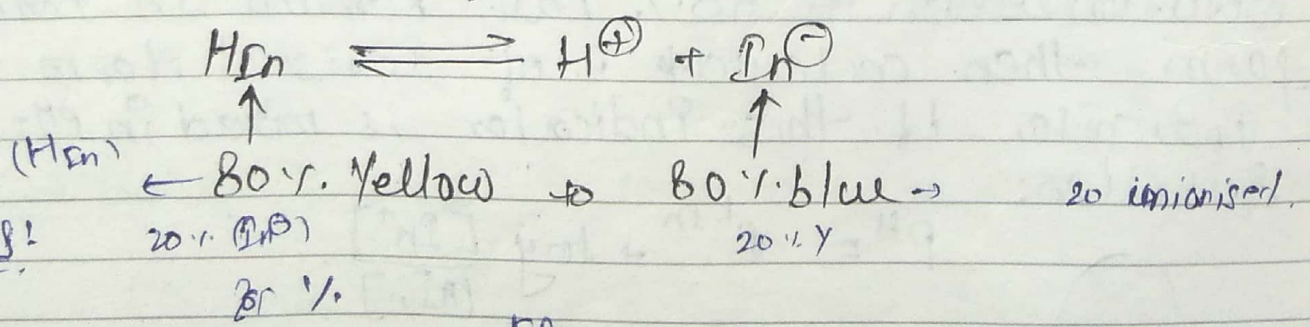 HIn ⇌ H⊕ + In⊖
↑ ↑
(HIn) ← 80 %. Yellow to 80 %. blue → 20 unionised.
20 %. (In⊖) 20 % Y
%.